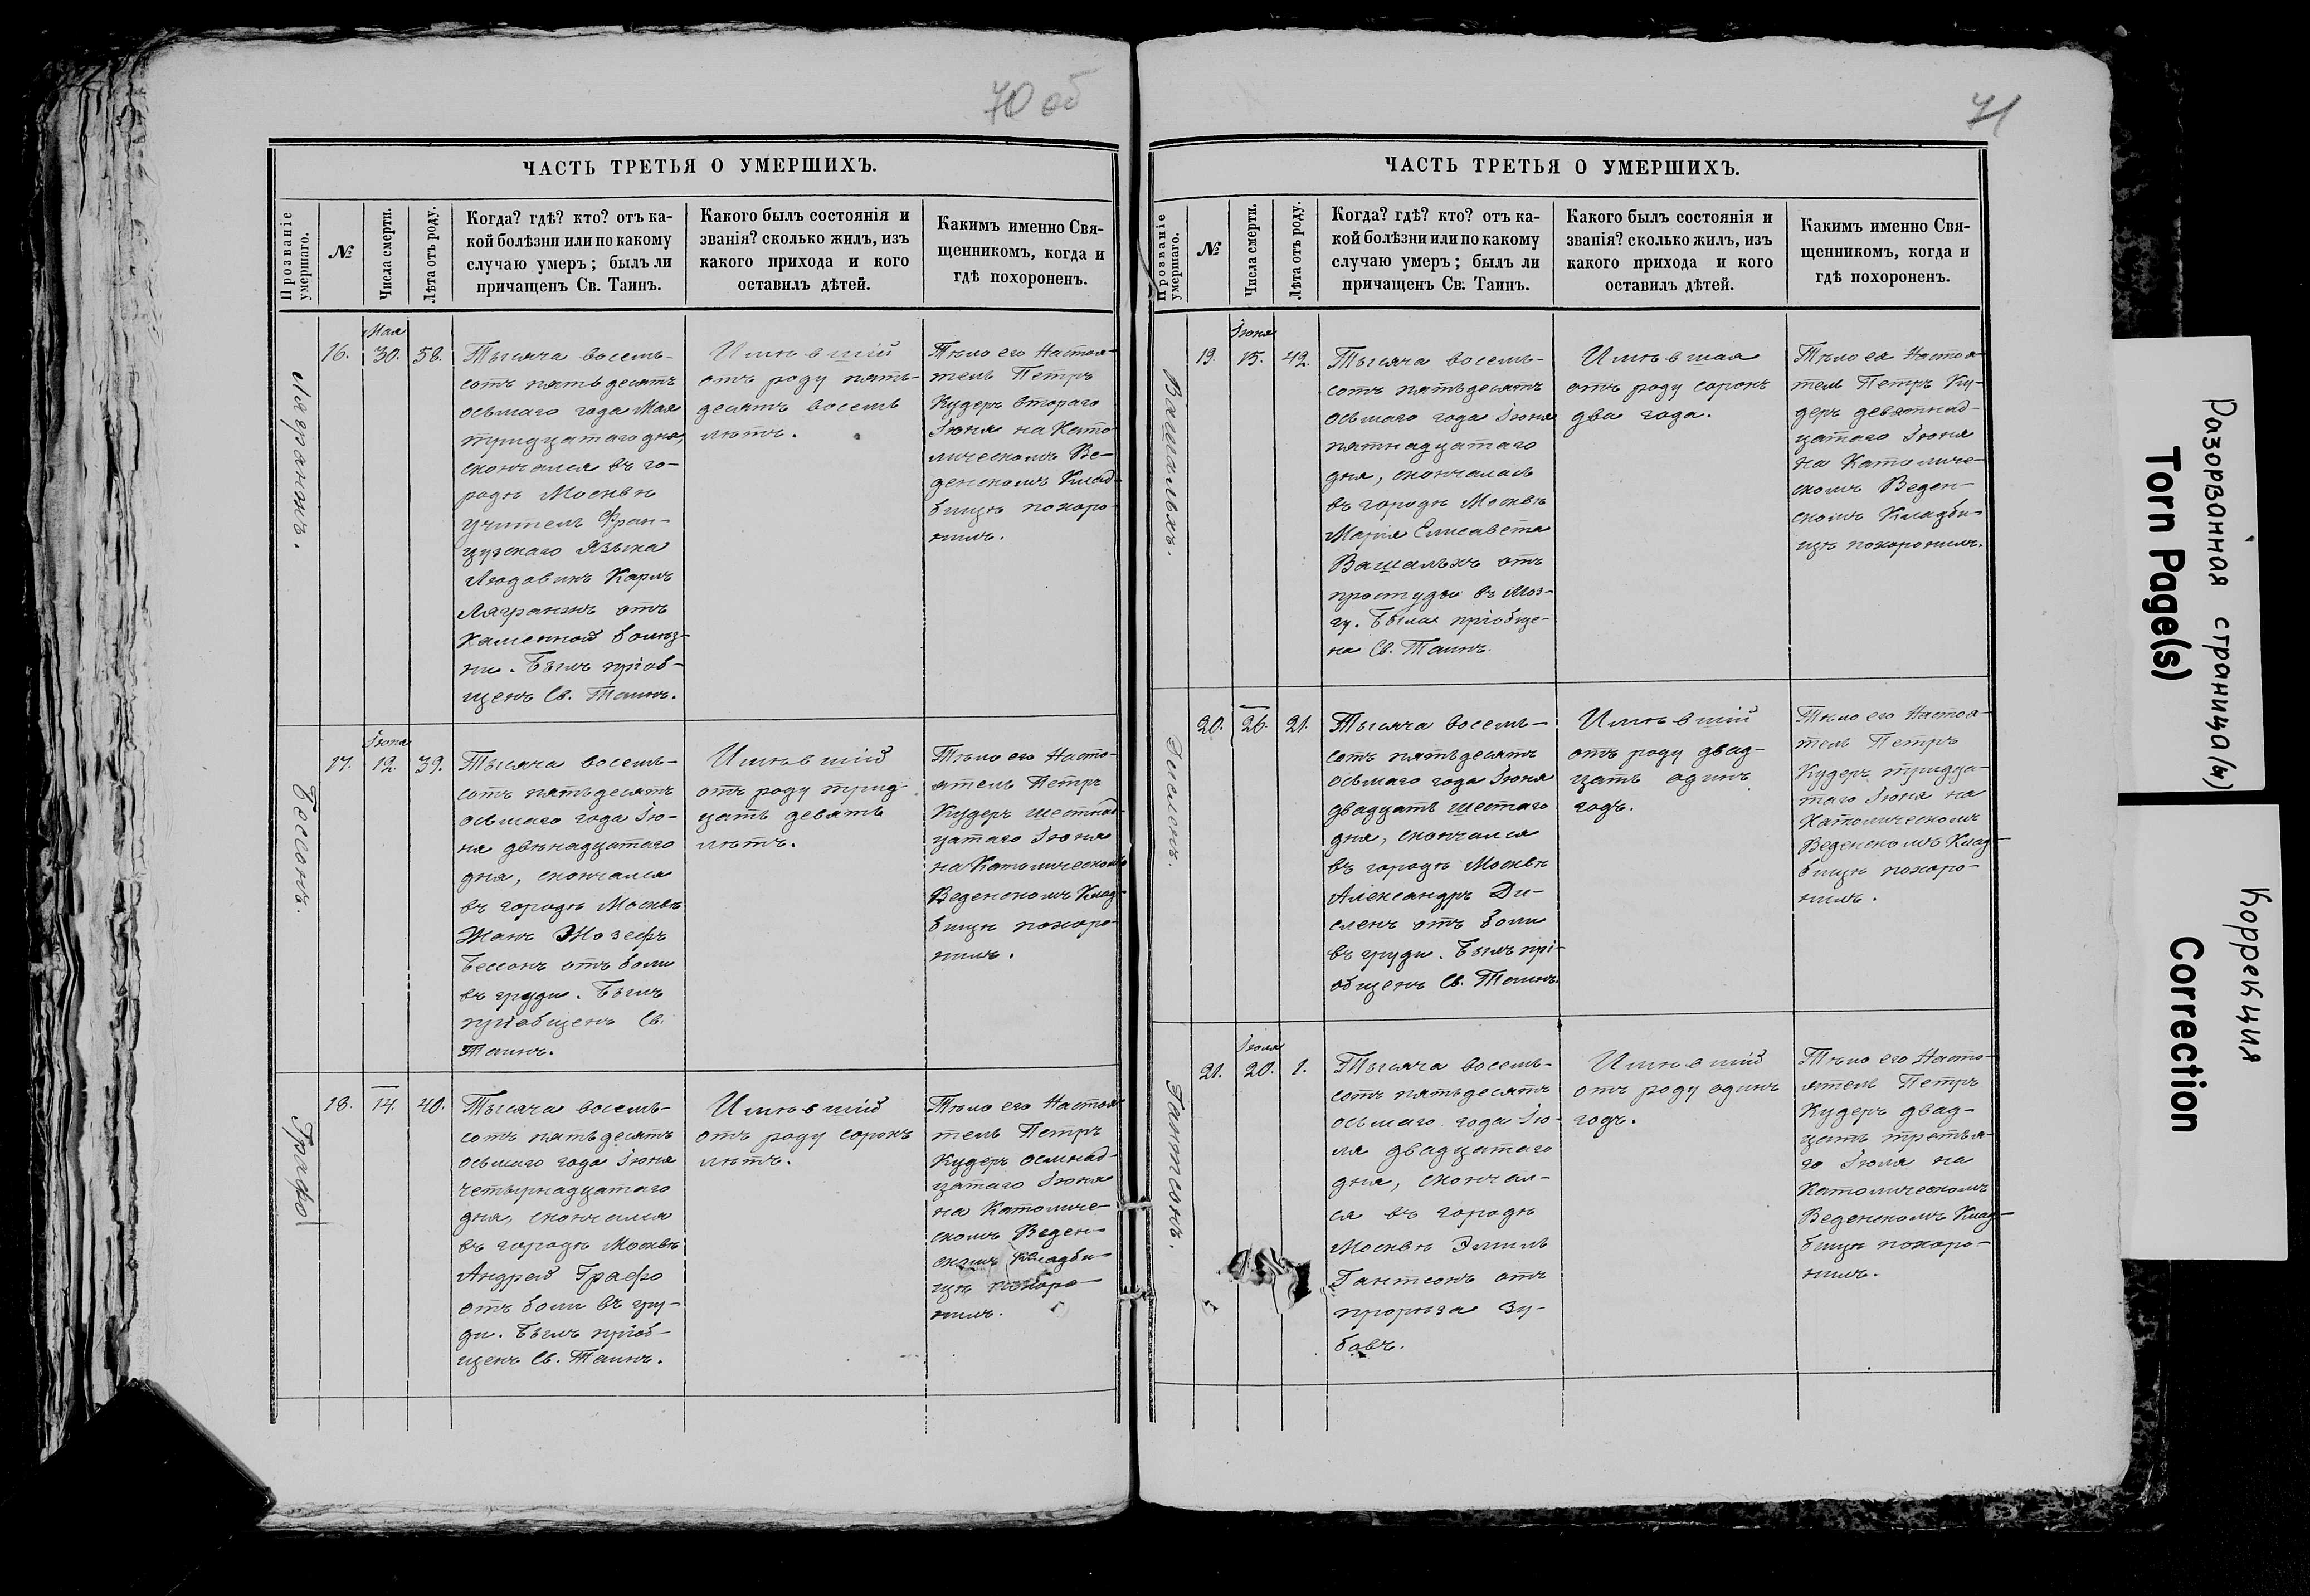 70 об
ЧАСТЬ ТРЕТЬЯ О УМЕРШИХЪ.
Прозваніе умершаго.
№
Числа смерти.
Лѣта отъ роду.
Когда? гдѣ? кто? отъ ка-
кой болѣзни или по какому
случаю умеръ; былъ ли
причащенъ Св. Таинъ.
Какого былъ состоянія и
званія? сколько жилъ, изъ
какого прихода и кого
оставилъ дѣтей.
Какимъ именно Свя-
щенникомъ, когда и
гдѣ похороненъ.
Лягранжъ.
16.
Мая
30.
58.
Тысяча восемь-
сотъ пятьдесятъ
осьмаго года Мая
тридцатаго дня,
скончался въ го-
родѣ Москвѣ
учитель Фран-
цузскаго языка
Людовикъ Карлъ
Лягранжъ отъ
Каменной болѣз-
ни. Былъ пріоб-
щенъ Св. Таинъ.
Имѣвшій
отъ роду пять-
десятъ восемь
лѣтъ.
Тѣло его Настоя-
тель Петръ
Кудеръ втораго
Іюня на Като-
лическомъ Ве-
денскомъ Клад-
бищѣ похоро-
нилъ.
Бессонъ.
17.
Іюня
12.
39.
Тысяча восемь-
сотъ пятьдесятъ
осьмаго года Ію-
ня двѣнадцатаго
дня, скончался
въ городѣ Москвѣ
Жанъ Жозефъ
Бессонъ отъ боли
въ груди. Былъ
пріобщенъ Св.
Таинъ.
Имѣвшій
отъ роду трид-
цать девять
лѣтъ.
Тѣло его Насто-
ятель Петръ
Кудеръ шестнад-
цатаго Іюня
на Католическомъ
Веденскомъ Клад-
бищѣ похоро-
нилъ.
Графо
18.
14.
40.
Тысяча восемь-
сотъ пятьдесятъ
осьмаго года Іюня
четырнадцатаго
дня, скончался
въ городѣ Москвѣ
Андрей Графо
отъ боли въ гру-
ди. Былъ пріоб-
щенъ Св. Таинъ.
Имѣвшій
отъ роду сорокъ
лѣтъ.
Тѣло его Настоя-
тель Петръ
Кудеръ осмнад-
цатаго Іюня
на Католиче-
скомъ Веден-
скомъ Кладби-
щѣ похоро-
нилъ.
71
ЧАСТЬ ТРЕТЬЯ О УМЕРШИХЪ.
Прозваніе умершаго.
№
Числа смерти.
Лѣта отъ роду.
Когда? гдѣ? кто? отъ ка-
кой болѣзни или по какому
случаю умеръ; былъ ли
причащенъ Св. Таинъ.
Какого былъ состоянія и
званія? сколько жилъ, изъ
какого прихода и кого
оставилъ дѣтей.
Какимъ именно Свя-
щенникомъ, когда и
гдѣ похороненъ.
Вашальхъ.
19.
Іюня
15.
42.
Тысяча восемь-
сотъ пятьдесятъ
осьмаго года Іюня
пятнадцатаго
дня, скончалась
въ городѣ Москвѣ
Марія Елисавета
Вашальхъ отъ
простуды въ моз-
гу. Была пріобще-
на Св. Таинъ.
Имѣвшая
отъ роду сорокъ
два года.
Тѣло ея Настоя-
тель Петръ Ку-
деръ девятнад-
цатаго Іюня
на Католиче-
скомъ Веден-
скомъ Кладби-
щѣ похоронилъ.
20.
26.
21.
Тысяча восемь-
сотъ пятьдесятъ
осьмаго года Іюня
двадцать шестаго
дня, скончался
въ городѣ Москвѣ
Александръ Ди-
сленъ отъ боли
въ груди. Былъ прі-
общенъ Св. Таинъ.
Имѣвшій
отъ роду двад-
цать одинъ
годъ.
Тѣло его Настоя-
тель Петръ
Кудеръ тридца-
таго Іюня на
Католическомъ
Веденскомъ Клад-
бищѣ похоро-
нилъ.
Гантсонъ.
21.
Іюля
20.
1.
Тысяча восемь-
сотъ пятьдесятъ
осьмаго года Ію-
ля двадцатаго
дня, скончал-
ся въ городѣ
Москвѣ Эмиль
Гантсонъ отъ
прорѣза зу-
бовъ.
Имѣвшій
отъ роду одинъ
годъ.
Тѣло его Насто-
ятель Петръ
Кудеръ двад-
цать третья-
го Іюля на
Католическомъ
Веденскомъ Клад-
бищѣ похоро-
нилъ.
Разорванная страница(ы)
Torn Page(s)
Коррекция
Correction